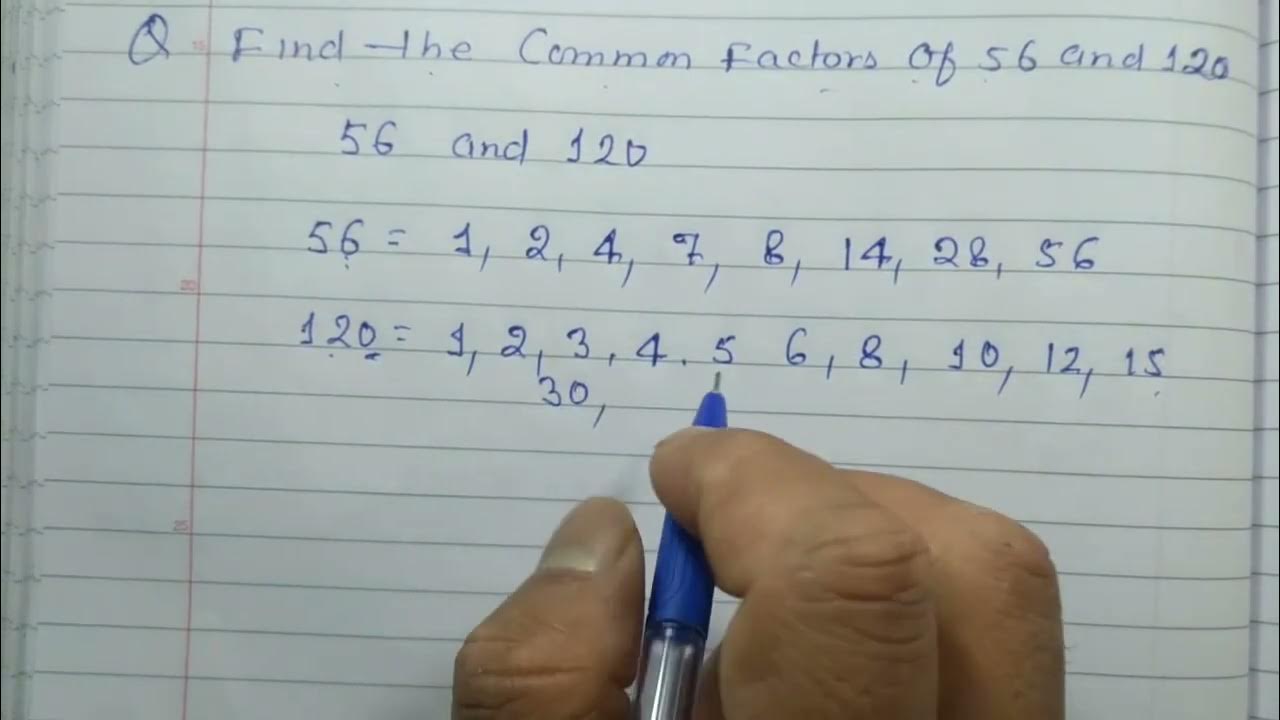 Q Find the Common Factors Of 56 and 120
56 and 120
56 = 1, 2, 4, 7, 8, 14, 28, 56
120 = 1, 2, 3, 4. 5 6, 8, 10, 12, 15
30,